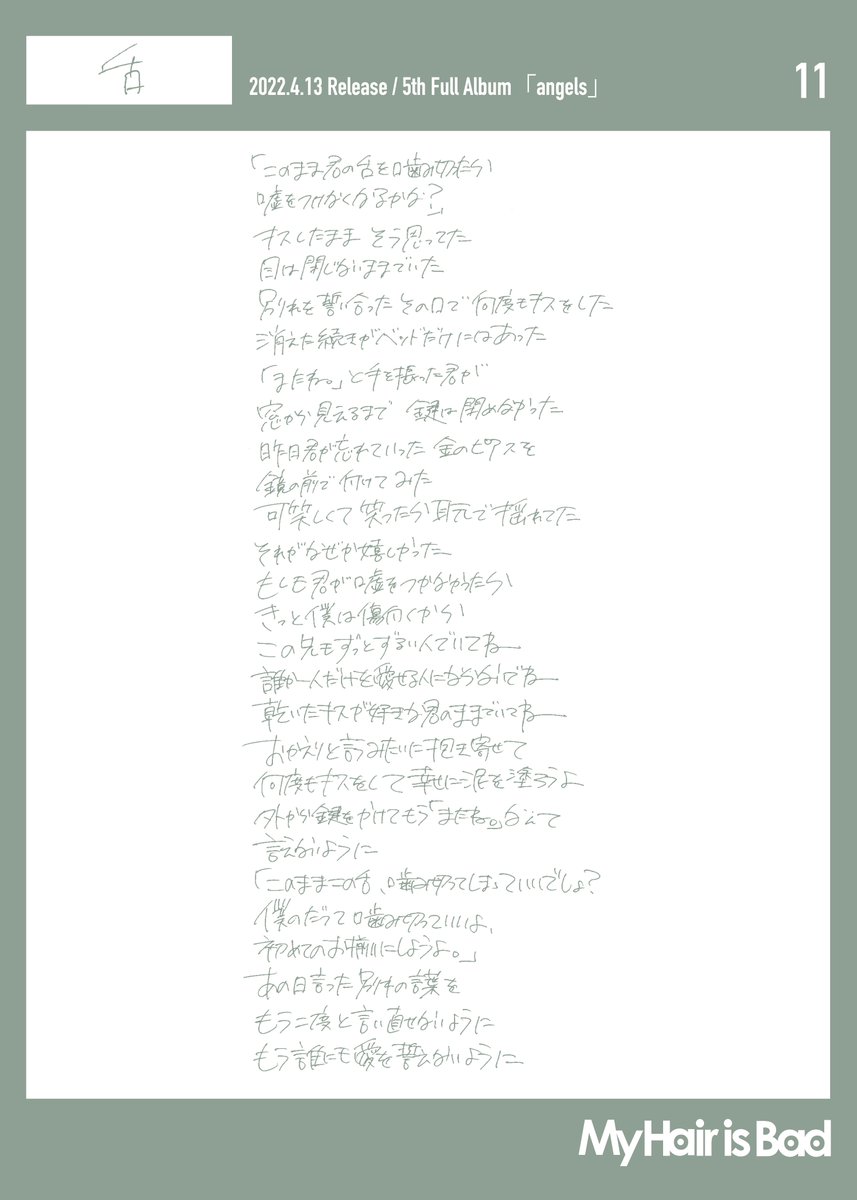 舌
2022.4.13 Release / 5th Full Album 「angels」
11
「このまま君の舌を噛み切ったら
嘘をつけなくなるかな?」
キスしたまま そう思ってた
目は閉じないままでいた
別れを誓い合った その口で 何度もキスをした
消えた続きがベッドだけにはあった
「またね。」と手を振った君が
窓から見えるまで 鍵は閉めなかった
昨日君が忘れていった 金のピアスを
鏡の前で付けてみた
可笑しくて 笑ったら 耳元で揺れてた
それがなぜか嬉しかった
もしも君が嘘をつかなかったら
きっと僕は傷付くから
この先もずっとずるい人でいてね
誰か一人だけを愛せる人にならないでね
乾いたキスが好きな君のままでいてね
おかえりと言うみたいに抱き寄せて
何度もキスをして 幸せに泥を塗ろうよ
外から鍵をかけてもう「またね。」なんて
言えないように
「このままこの舌、噛み切ってしまっていいでしょ?
僕のだって噛み切っていいよ、
初めてのお揃いにしようよ。」
あの日言った別れの言葉を
もう二度と言い直せないように
もう誰にも愛を誓えないように
My Hair is Bad